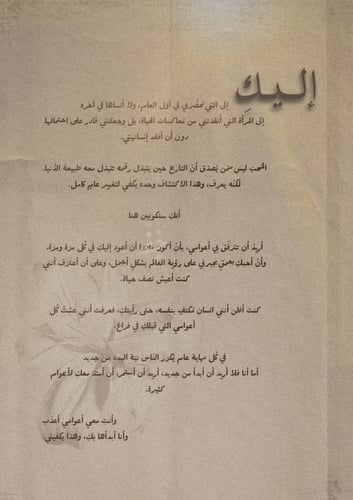 إليك
إلى التي تحضرني في أول العام، ولا أنساها في آخره
إلى المرأة التي أنقذتني من معاكسات الحياة، بل وجعلتني قادر على احتمالها
دون أن أفقد إنسانيتي.
المحب ليس ممن يُصدق أن التاريخ حين يتبدل رقمه تتبدل معه طبيعة الأنيا.
لكنه يعرف، وهذا الاكتشاف وحده يكفي لتغيير عام كامل.
أنك ستكونين هنا
أريد أن تترفق بي أعوامي، بأن أكون دائمًا أن أعود إليك في كل مرة ومرة.
وأن أحبك بعمق يجبرني على رؤية العالم بشكل أجمل، وعلى أن أعترف أنني
كنت أعيش نصف حياة.
كنت أظن أنني انسان مكتفٍ بنفسه، حتى رأيتك، فعرفت أنني عشت كُل
أعوامي التي قبلك في فراغ.
في كُل نهاية عام يُكرر الناس نيّة البدء من جديد
أما أنا فلا أريد أن أبدأ من جديد، أريد أن أستمر، أن أمتد معك لأعوام
كثيرة.
وأنت معي أعوامي أعذب
وأنا أبدأها بك، وهذا يكفيني.